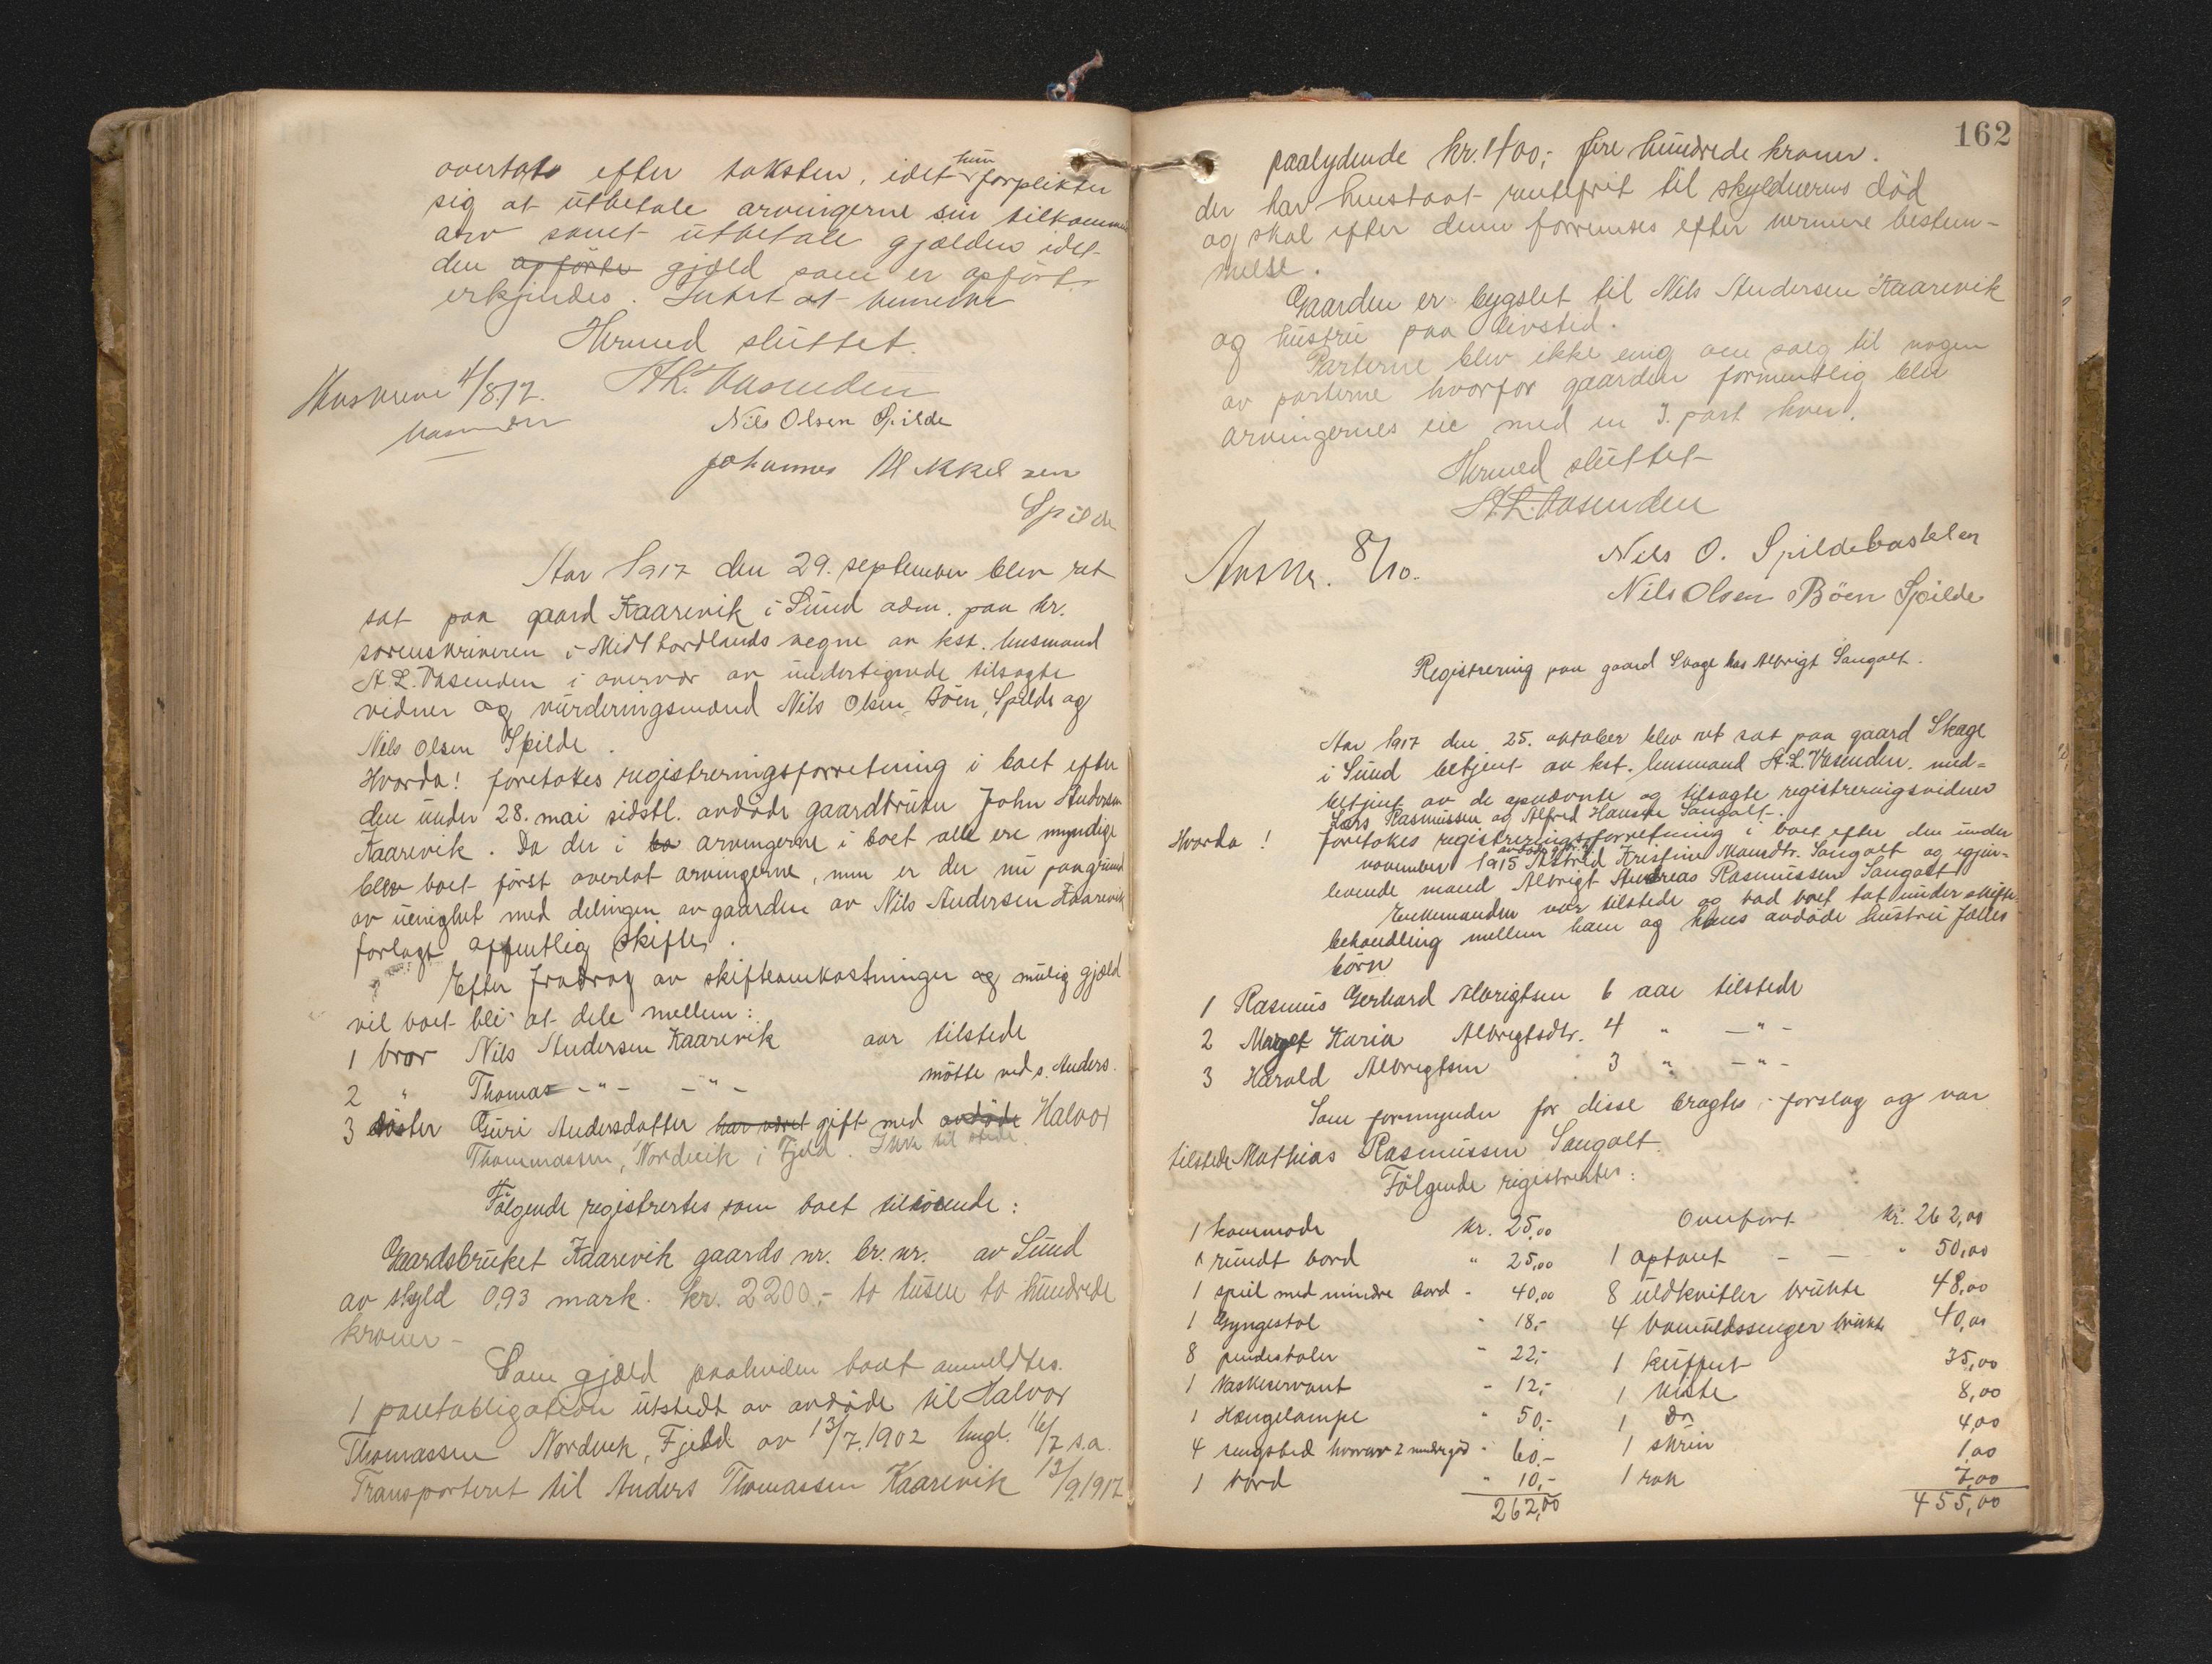 overtats efter taksten, idet hun forplikter
sig at utbetale arvingerne sin tilkommende
arv samt utbetale gjælden idet
den opførte gjæld som er opført
erkjendes. Intet at bemerke
Hermed sluttet.
4/8.17. A.L. Vasenden
Vasenden Nils Olsen Spilde
Johannes Mikkelsen
Spilde
Aar 1917 den 29. september blev ret
sat paa gaard Kaarevik i Sund adm. paa hr.
sorenskriveren i Midthordlands vegne av kst. lensmand
A.L. Vasenden i overvær av undertegnede tilsagte
vidner og vurderingsmænd Nils Olsen Böen, Spilde og
Nils Olsen Spilde.
Hvorda! foretokes registreringsforretning i boet efter
den under 28. mai sidstl. avdöde gaardbruker John Andersen
Kaarevik. Da der i bo arvingerne i boet alle ere myndige
blev boet först overlat arvingerne, men er der nu paa grund
av uenighet med delingen av gaarden av Nils Andersen Kaarevik
forlagt offentlig skifte.
Efter fradrag av skifteomkostninger og mulig gjæld
vil boet bli at dele mellem:
1 bror Nils Andersen Kaarevik aar tilstede
2 " Thomas -"- -"- mötte ved s. Anders.
3 söster Guri Andersdatter har været gift med avdöde Halvor
Thommassen, Nordvik i Fjeld. Ikke til stede.
Fölgende registrertes som boet tilhörende:
Gaardsbruket Kaarevik gaards nr. br. nr. av Sund
av skyld 0,93 mark. kr. 2200,- to tusen to hundrede
kroner -
Som gjæld paahvilen boet anmeldtes.
1 pantobligation utstedt av avdöde til Halvor
Thomassen Nordvik, Fjeld av 13/7.1902 tingl. 16/7 s.a.
Transportert til Anders Thomassen Kaarevik 13/9.1917
162
paalydende kr. 400,- fire hundrede kroner.
der har henstaat rentefrit til skyldnerens död
og skal efter denne forrentes efter nermere bestem-
melse.
Gaarden er bygslet til Nils Andersen Kaarevik
og hustru paa livstid.
Parterne blev ikke enig om salg til nogen
av parterne hvorfor gaarden formentlig blir
arvingernes eie med en 3. part hver.
Hermed sluttet
A.L. Vasenden
8/10. Nils O. Spildebastelen
Nils Olsen Böen Spilde
Registrering paa gaard Skage hos Albrigt Sangolt.
Aar 1917 den 25. oktober blev ret sat paa gaard Skage
i Sund betjent av kst. lensmand A.L. Vasenden. med-
betjent av de opnævnte og tilsagte registreringsvidner
Lars Rasmussen og Alfred Hansen Sangolt.
Hvorda! foretokes registreringsforretning i boet efter den under
november 1915 avdöde Astrid Kristine Monsdtr. Sangolt og igjen-
levende mand Albrigt Andreas Rasmussen Sangolt
Enkemanden var tilstede og bad boet tat under skifte-
behandling mellem ham og hans avdöde hustru fælles
börn
1 Rasmus Gerhard Albrigtsen 6 aar tilstede
2 Marget Karia Albregtsdtr. 4 " -"-
3 Harald Albregtsen 3 " -"-
Som formynder for disse bragtes i forslag og var
tilstede Mathias Rasmussen Sangolt.
Fölgende registrertes:
1 kommode kr. 25,00
1 rundt bord " 25,00
1 speil med mindre bord - 40,00
1 Gyngestol " 18,-
8 pindestoler " 22,-
1 Vaskeservant - 12,-
1 Hængelampe " 50,-
4 sengsted hvorav 2 mindregod - 60,-
1 bord " 10,-
262,00
Overfört kr. 262,00
1 optrukt - - " 50,00
8 uldkvitler brukte 48,00
4 bomuldssenger brukte 40,00
1 kuffert 35,00
1 kiste 8,00
1 Do 4,00
1 skrin 1,00
1 rok 7,00
455,00